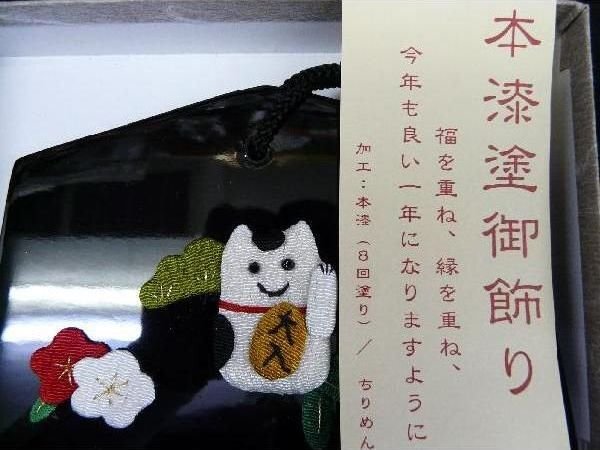 本漆塗御飾り
福を重ね、縁を重ね、
今年も良い一年になりますように
加工：本漆（8回塗り）／ちりめん
大入